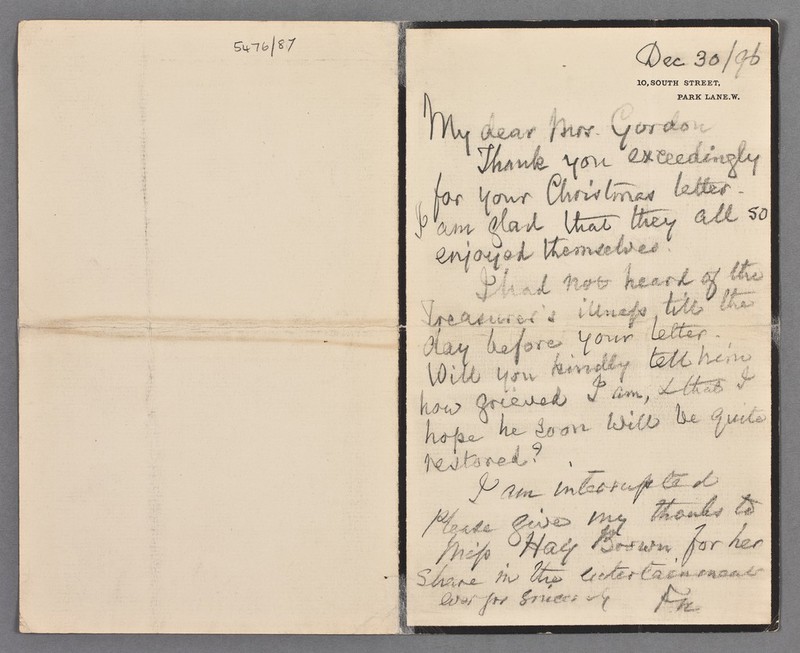 5476/87
Dec 30/96
10, SOUTH STREET,
PARK LANE. W.
My dear Mrs. Gordon
Thank you exceedingly
for your Christmas letter -
I am glad that they all so
enjoyed themselves.
I had not heard of the
Treasurer's illness till the
day before your letter -
Will you kindly tell him
how grieved I am, & that I
hope he soon will be quite
restored?
I am interrupted
Please give my thanks to
Miss Hay Brown for her
share in the entertainment
ever yr sincerely
FN